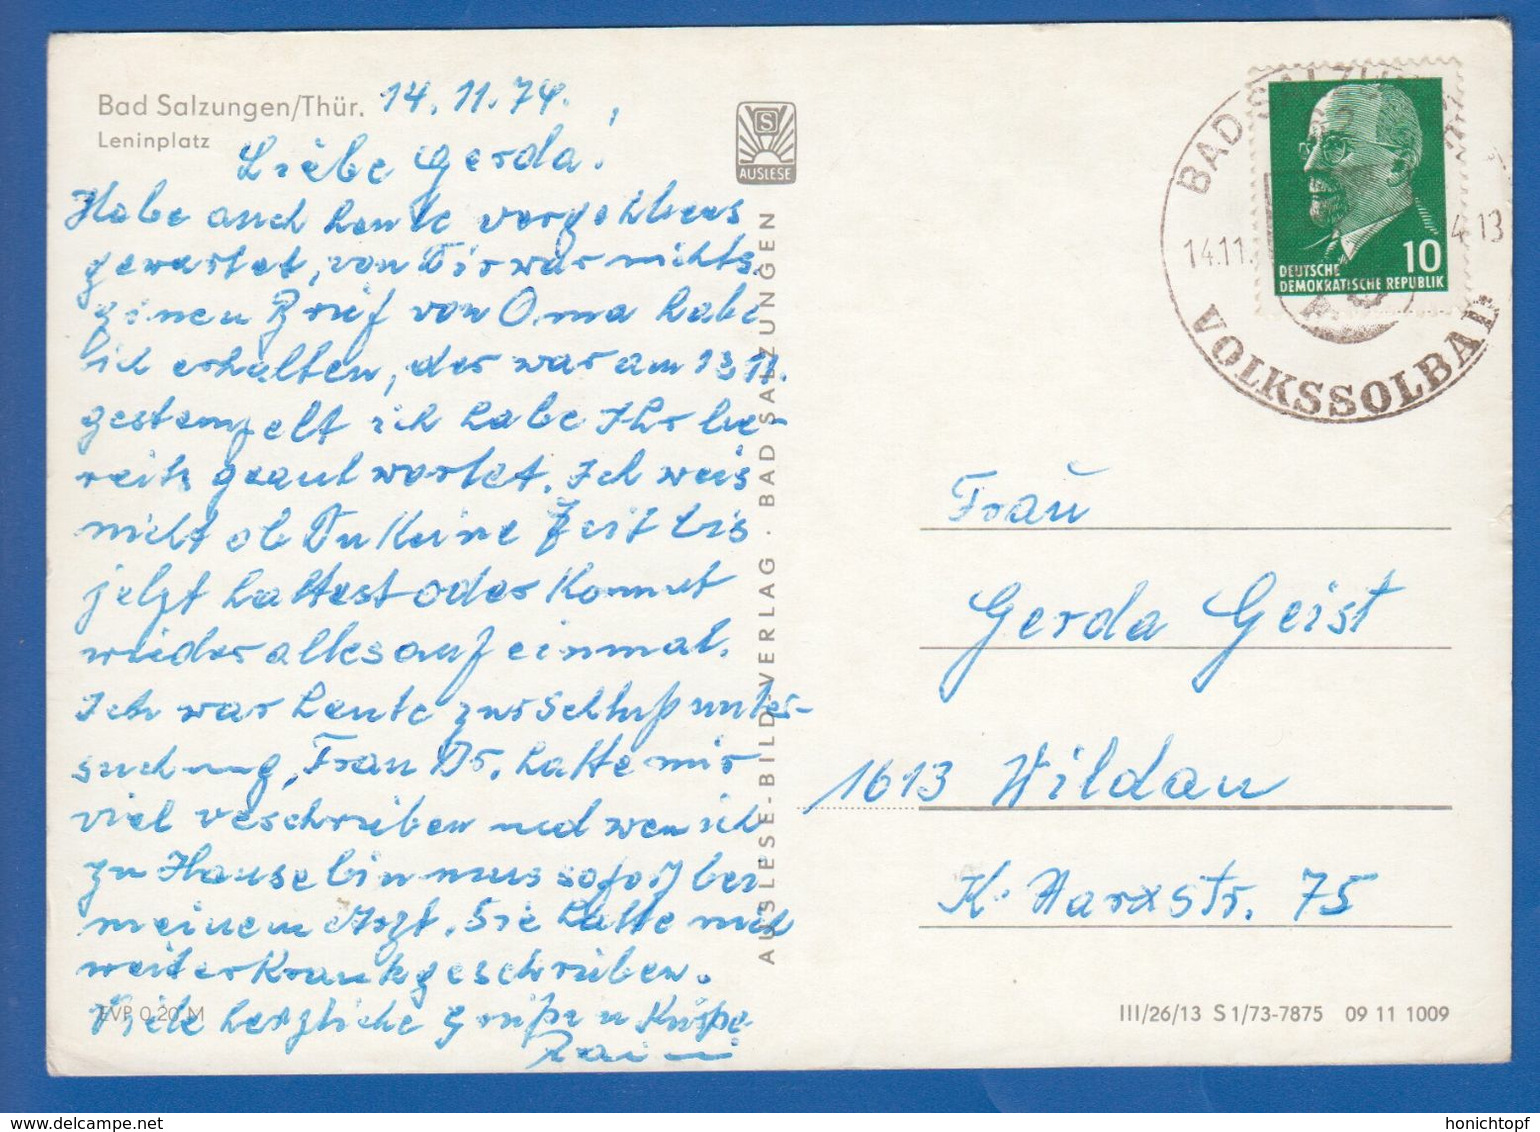 Bad Salzungen/Thür. 14.11.74.
Leninplatz
Liebe Gerda!
Habe auch heute vergebliches
gewartet, von Dir war nichts.
einen Brief von Oma habe
ich erhalten, der war am 13 11.
gestempelt ich habe Ihr be-
reits geantwortet. Ich weis
nicht ob Du keine Zeit bis
jetzt hattest oder kommt
wieder alles auf einmal.
Ich war heute zur Schlußunter-
suchung, Frau Dr. hatte mir
viel veschrieben und wen ich
zu Hause bin mus sofort bei
meinem Arzt. Sie hatte mich
weiter krankgeschrieben.
Viele herzliche Grüße u Küße
EVP 0,20 M
AUSLESE
AUSLESE-BILD-VERLAG · BAD SALZUNGEN
BAD SALZUN
14.11.
4-13
VOLKSSOLBAD
10
DEUTSCHE
DEMOKRATISCHE REPUBLIK
Frau
Gerda Geist
1613 Wildau
K. Marxstr. 75
III/26/13 S 1/73-7875 09 11 1009
www.delcampe.net
honichtopf